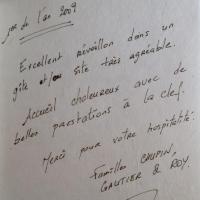 jour de l'an 2009
Excellent réveillon dans un
gîte et/ou site très agréable.
Accueil chaleureux avec de
belles prestations à la clef.
Merci pour votre hospitalité.
Familles CRUPIN,
GAUTIER & ROY.